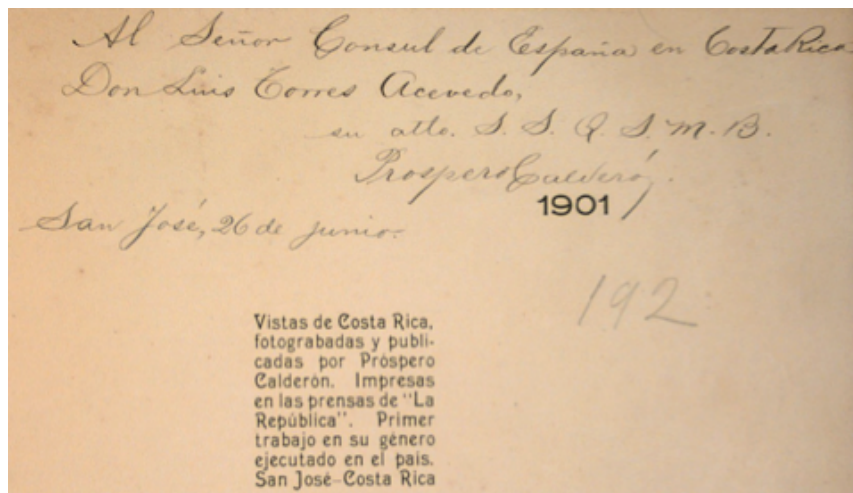 Al Señor Consul de España en Costa Rica
Don Luis Torres Acevedo,
su atto. S. S. Q. S. M. B.
Prospero Calderón.
1901
San José, 26 de junio.
192
Vistas de Costa Rica,
fotograbadas y publi-
cadas por Próspero
Calderón. Impresas
en las prensas de "La
República". Primer
trabajo en su género
ejecutado en el país.
San José-Costa Rica